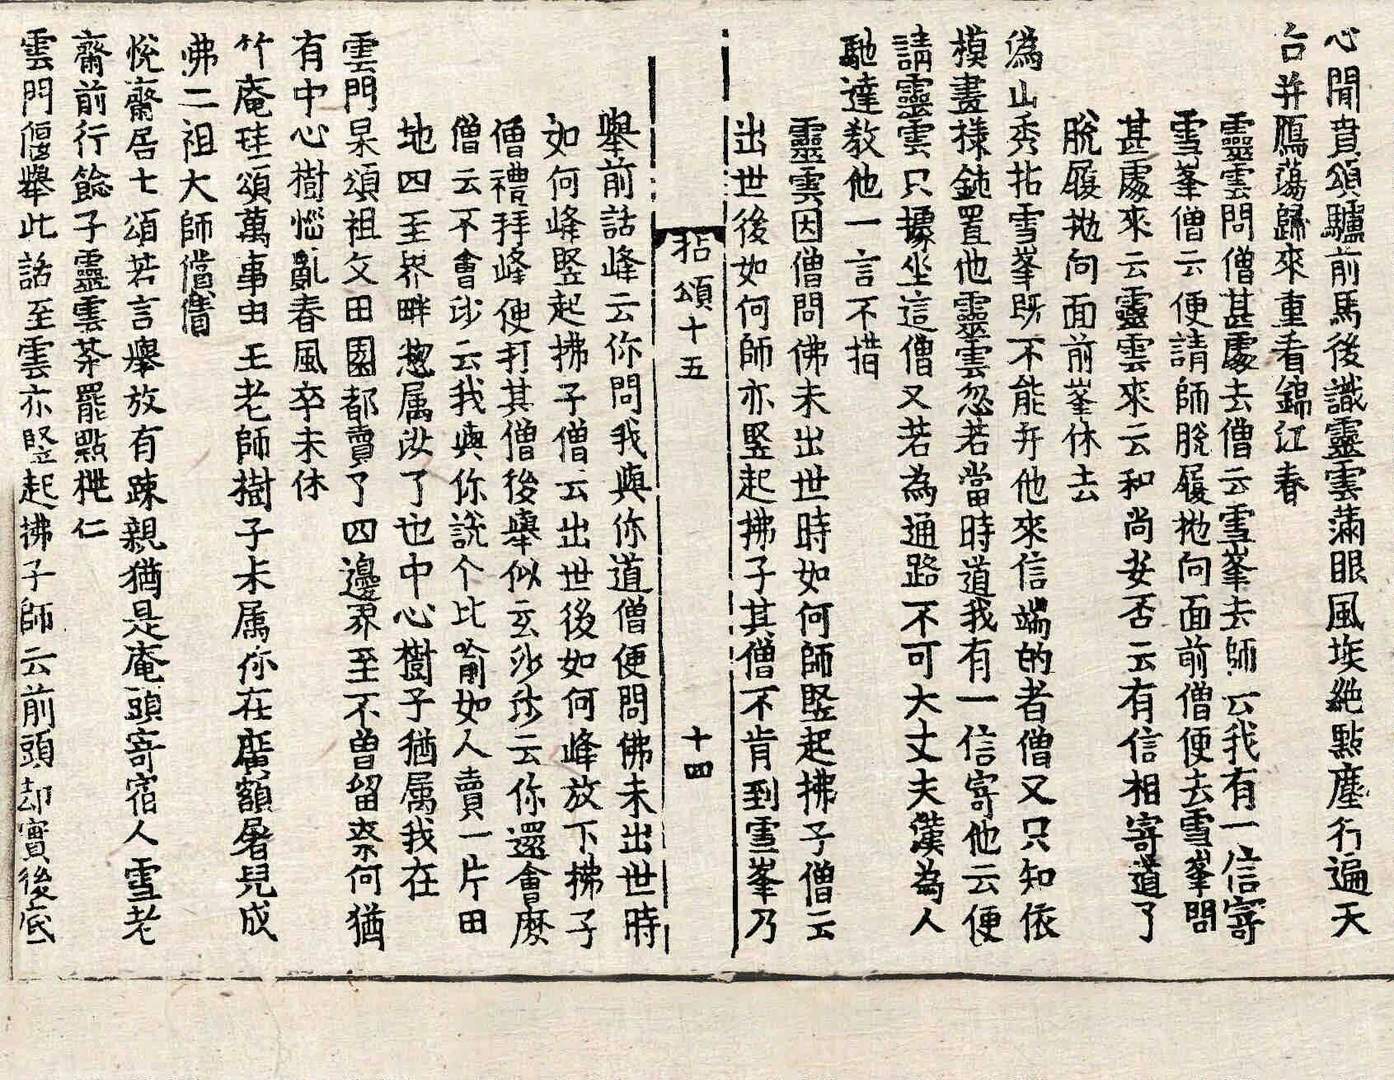 心聞賁頌驢前馬後識靈雲滿眼風埃絶點塵行遍天
台并鴈蕩歸來重看錦江春
靈雲問僧甚處去僧云雪峯去師云我有一信寄
雪峯僧云便請師脫履抛向面前僧便去雪峯問
甚處來云靈雲來云和尚安否云有信相寄道了
脫履抛向面前峯休去
潙山秀拈雪峯旣不能弁他來信端的者僧又只知依
模畫樣鈍置他靈雲忽若當時道我有一信寄他云便
請靈雲只據坐這僧又若為通路不可大丈夫漢為人
馳達教他一言不措
靈雲因僧問佛未出世時如何師竪起拂子僧云
出世後如何師亦竪起拂子其僧不肯到雪峯乃
拈頌十五
十四
舉前話峰云你問我與你道僧便問佛未出世時
如何峰竪起拂子僧云出世後如何峰放下拂子
僧禮拜峰便打其僧後舉似玄沙沙云你還會麽
僧云不會沙云我與你說个比喻如人賣一片田
地四至界畔惣属汝了也中心樹子猶属我在
雲門杲頌祖父田園都賣了四邊界至不曾留柰何猶
有中心樹惱亂春風卒未休
竹庵珪頌萬事由王老師樹子未属你在廣額屠兒成
佛二祖大師償債
悅齋居士頌若言舉放有踈親猶是庵頭寄宿人雪老
齋前行餕子靈雲茶罷點椪仁
雲門偃舉此話至雲亦竪起拂子師云前頭却實後底